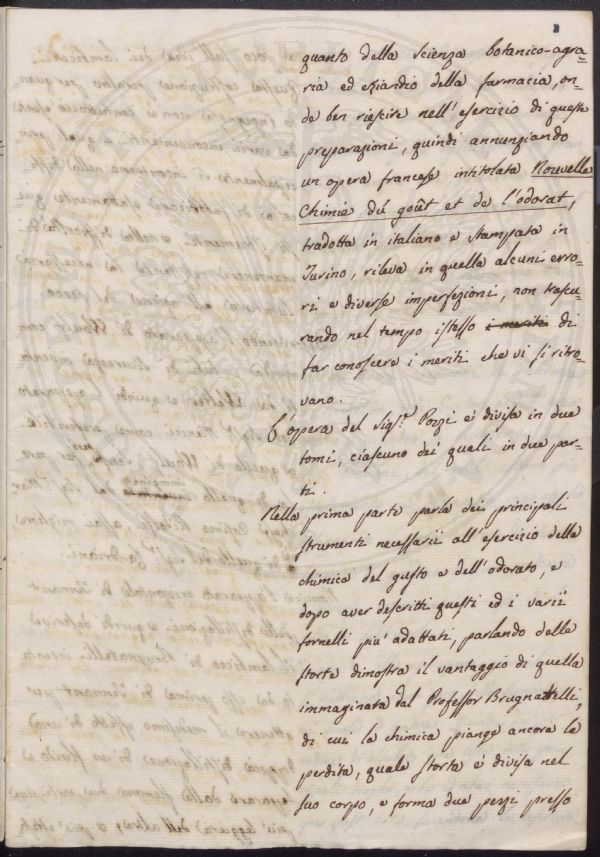 2
quanto della scienza botanico-agra=
ria ed eziandio della farmacia, on=
de ben riescire nell' esercizio di queste
preparazioni, quindi annunziando
un opera francese intitolata Nouvelle
Chimie du goût et de l'odorat,
tradotta in italiano e stampata in
Turino, rileva in quella alcuni erro=
ri e diverse imperfezioni, non trascu=
rando nel tempo istesso i meriti di
far conoscere i meriti che vi si ritro=
vano.
L'opera del Sig.r Pozzi è divisa in due
tomi, ciascuno dei quali in due par=
ti.
Nella prima parte parla dei principali
strumenti necessarii all' esercizio della
chimica del gusto e dell' odorato, e
dopo aver descritti questi ed i varii
fornelli più adattati, parlando delle
storte dimostra il vantaggio di quella
immaginata dal Professor Brugnattelli,
di cui la chimica piange ancora la
perdita, quale storta è divisa nel
suo corpo, e forma due pezzi presso